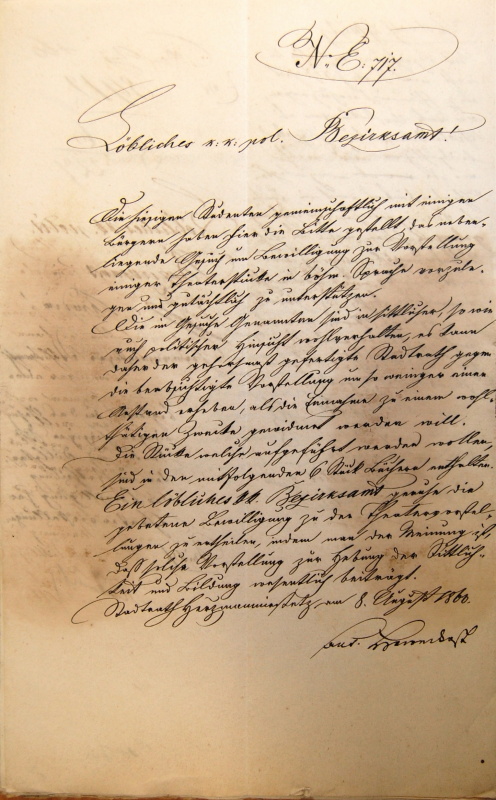 Nr. E: 717.
Löbliches k: k: pol. Bezirksamt!
Die hiesigen Studenten gemeinschaftlich mit einigen
Bürgern haben hier die Bitte gestellt, das neben-
liegende Gesuch um Bewilligung zur Vorstellung
einiger Theaterstücke in böhm. Sprache vorzule-
gen und gutächtlich zu unterstützen.
Die im Gesuche Genannten sind in sittlicher, so wie
auch politischer Hinsicht wohlverhalten, es kann
daher der gehorsamst gefertigte Stadtrath gegen
die beabsichtigte Vorstellung um so weniger einen
Anstand erheben, als die Einnahme zu einem wohl-
thätigen Zwecke gewidmet werden will.
Die Stücke welche aufgeführt werden wollen,
sind in den mitfolgenden 6 Stück Büchern enthalten.
Ein löbliches k.k. Bezirksamt geruhe die
gebetene Bewilligung zu den Theatervorstel-
lungen zu ertheilen, indem man der Meinung ist,
daß solche Vorstellung zur Hebung der Sittlich-
keit und Bildung wesentlich beiträgt.
Stadtrath Heřmanměstetz, am 8. August 1860.